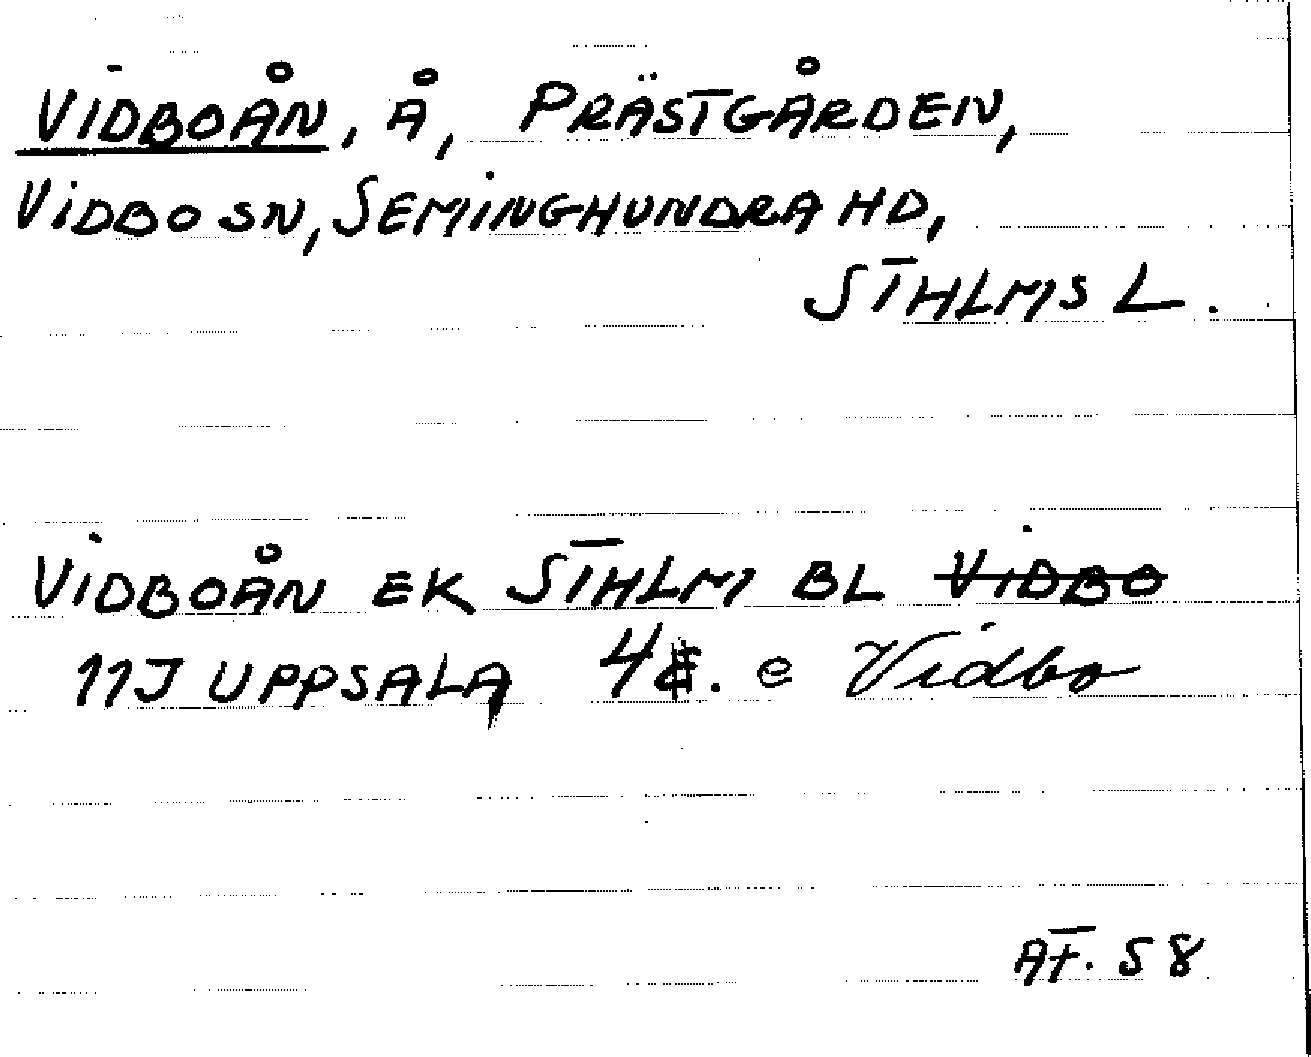 VIDBOÅN, Å, PRÄSTGÅRDEN,
VIDBO SN, SEMINGHUNDRA HD,
STHLMS L.
VIDBOÅN EK STHLM BL VIDBO
11J UPPSALA 4 e Vidbo
AF. 58